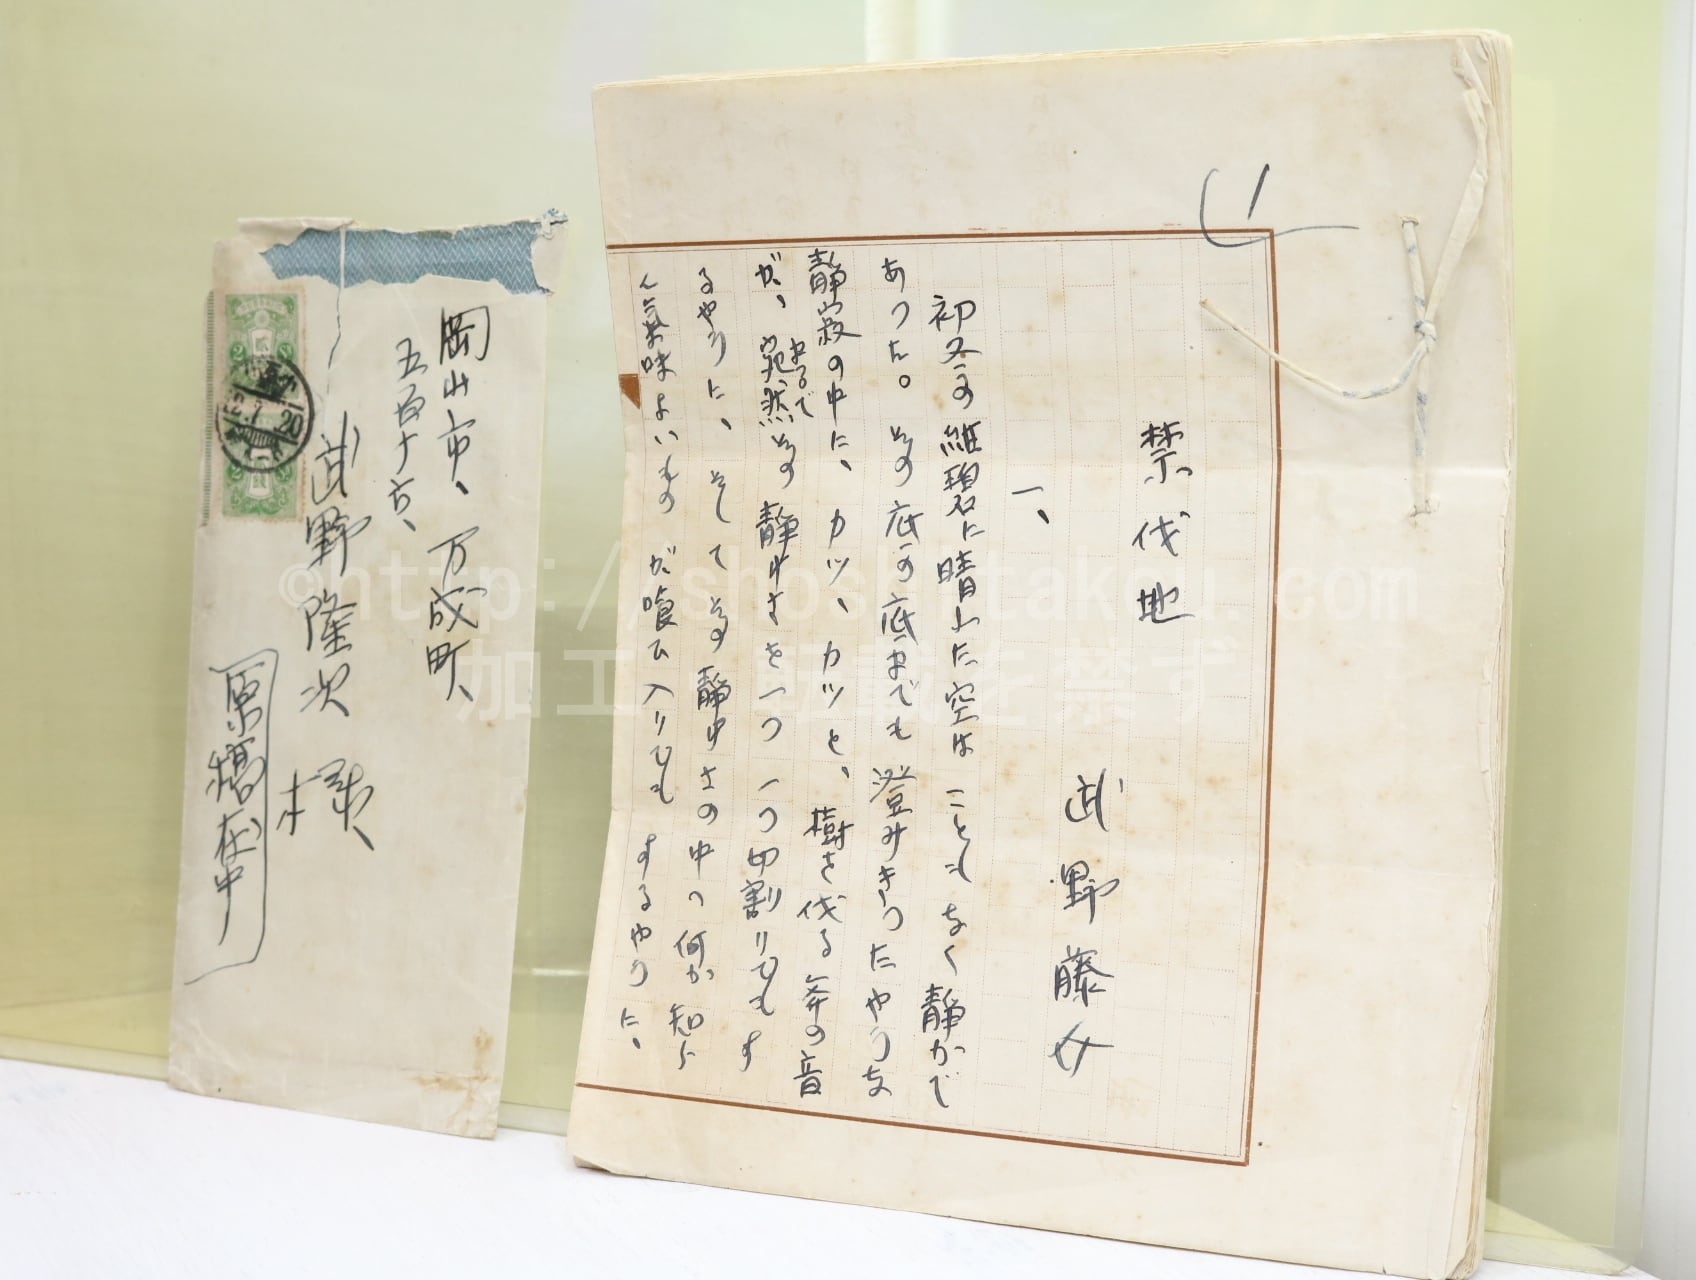 禁伐地
武野藤女
一、
初冬の維碧に晴れた空はこともなく静かで
あつた。その底の底までも澄みきつたやうな
静寂の中に、カツ、カツと、樹を伐る斧の音
が、宛然その静けさを一つ一つ切割りでもす
まるで
るやうに、そしてその静けさの中へ何か知ら
ん気味よいものが喰ひ入りでもするやうに、
岡山市、万成町、
五百十六、
武野隆次様
原稿在中
20
©http://shoshi-takou.com
加工・転載を禁ず